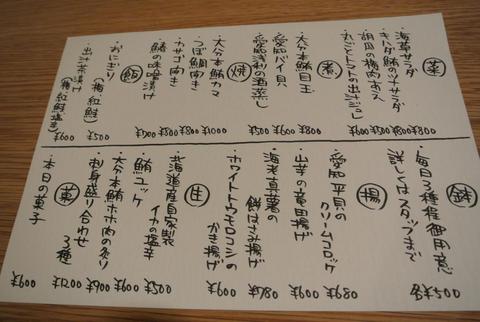 菜
・海草サラダ ¥800
・キハダ鮪のツナサラダ ¥800
・胡瓜の梅肉あえ ¥500
・丸ごとトマトの出汁ジュレ ¥600
煮
・大分本鮪目玉 ¥800
・愛知バイ貝 ¥600
・愛知浅利の酒蒸し ¥500
焼
・大分本鮪カマ ¥1000
・つぼ鯛開き ¥800
・カサゴ開き ¥800
・鰆の味噌漬け
飯
・おにぎり
(梅・紅鮭) ¥500
・出汁茶漬け
(梅・紅鮭・塩辛) ¥600
鉢
・毎日3種程御用意
詳しくはスタッフまで 各¥500
揚
・愛知平貝の
クリームコロッケ ¥680
・山芋の竜田揚げ ¥600
・海老真薯の
餅はさみ揚げ ¥980
・ホワイトトウモロコシの
かき揚げ ¥600
生
・北海道産自家製
イカの塩辛 ¥500
・鮪ユッケ ¥600
・大分本鮪ホホ肉の炙り ¥900
・刺身盛り合わせ
3種 ¥1200
菓
・本日の菓子 ¥600